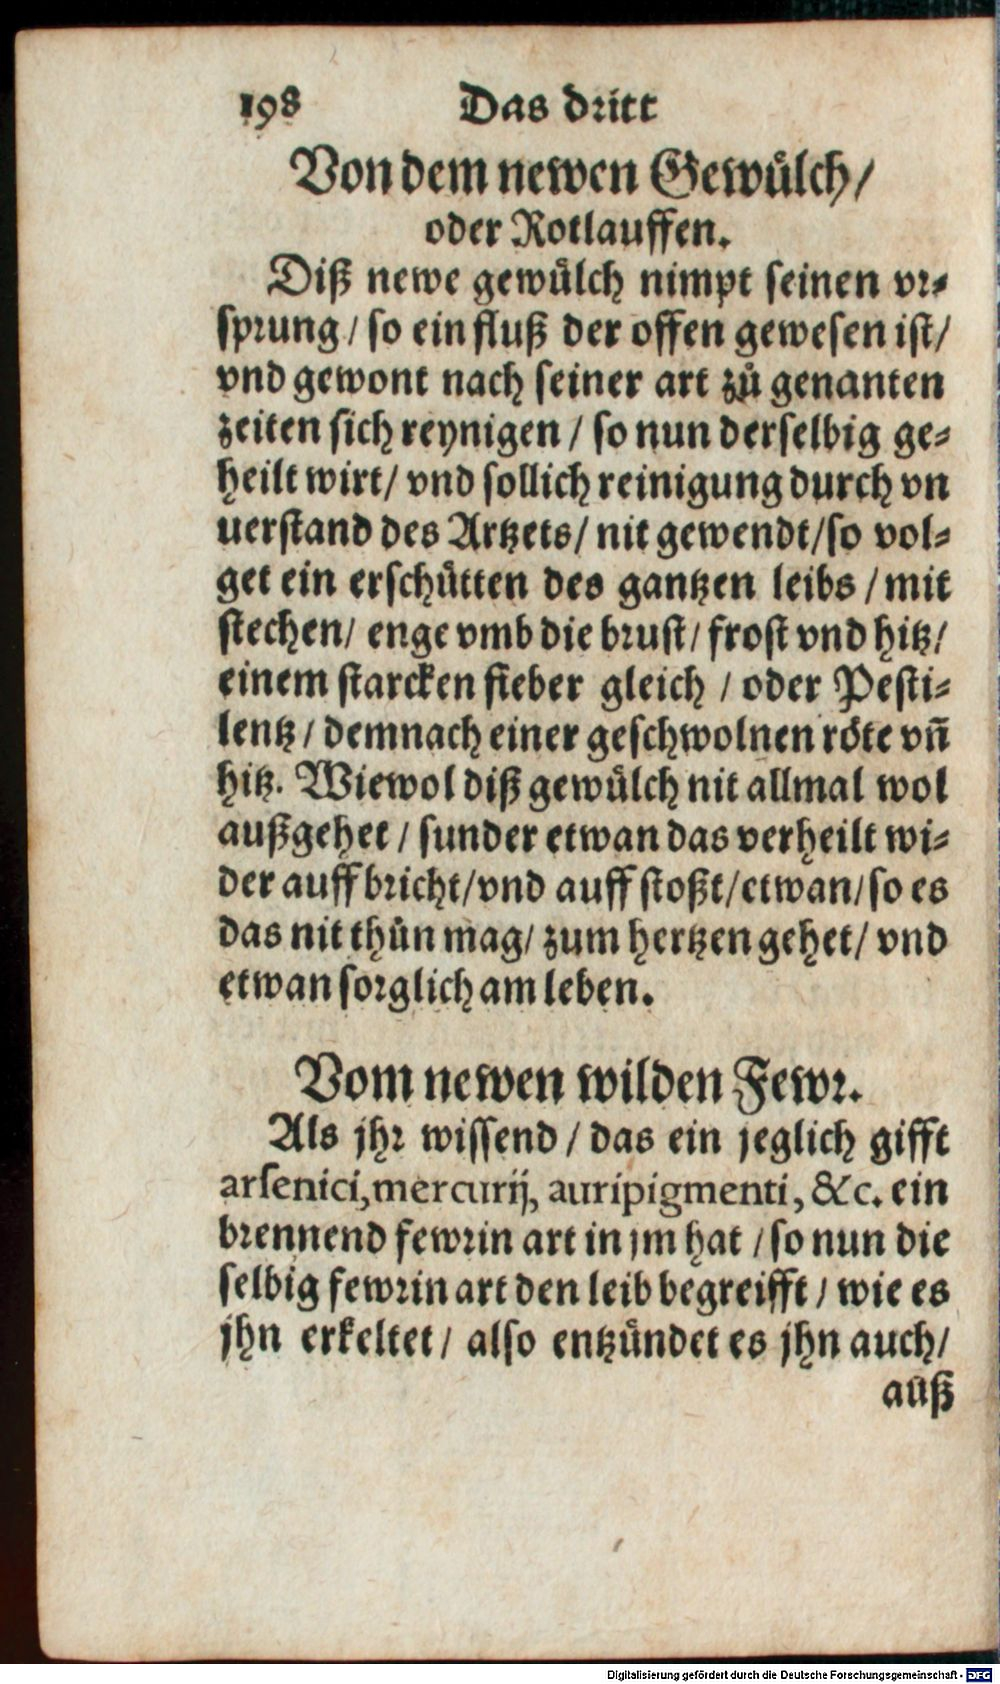 198 Das dritt
Von dem newen Gewuͤlch/
oder Rotlauffen.
Diß newe gewuͤlch nimpt seinen vr⸗
sprung/ so ein fluß der offen gewesen ist/
vnd gewont nach seiner art zuͦ genanten
zeiten sich reynigen/ so nun derselbig ge⸗
heilt wirt/ vnd sollich reinigung durch vn
uerstand des Artzets/ nit gewendt/ so vol⸗
get ein erschuͤtten des gantzen leibs/ mit
stechen/ enge vmb die brust/ frost vnd hitz/
einem starcken fieber gleich/ oder Pesti⸗
lentz/ demnach einer geschwolnen roͤte vñ
hitz. Wiewol diß gewuͤlch nit allmal wol
außgehet/ sunder etwan das verheilt wi⸗
der auffbricht/ vnd auffstoßt/ etwan/ so es
das nit thuͦn mag/ zum hertzen gehet/ vnd
etwan sorglich am leben.
Vom newen wilden Fewr.
Als jhr wissend/ das ein jeglich gifft
arsenici, mercurij, auripigmenti, &c. ein
brennend fewrin art in jm hat/ so nun die
selbig fewrin art den leib begreifft/ wie es
jhn erkeltet/ also entzuͤndet es jhn auch/
auß
Digitalisierung gefördert durch die Deutsche Forschungsgemeinschaft - DFG